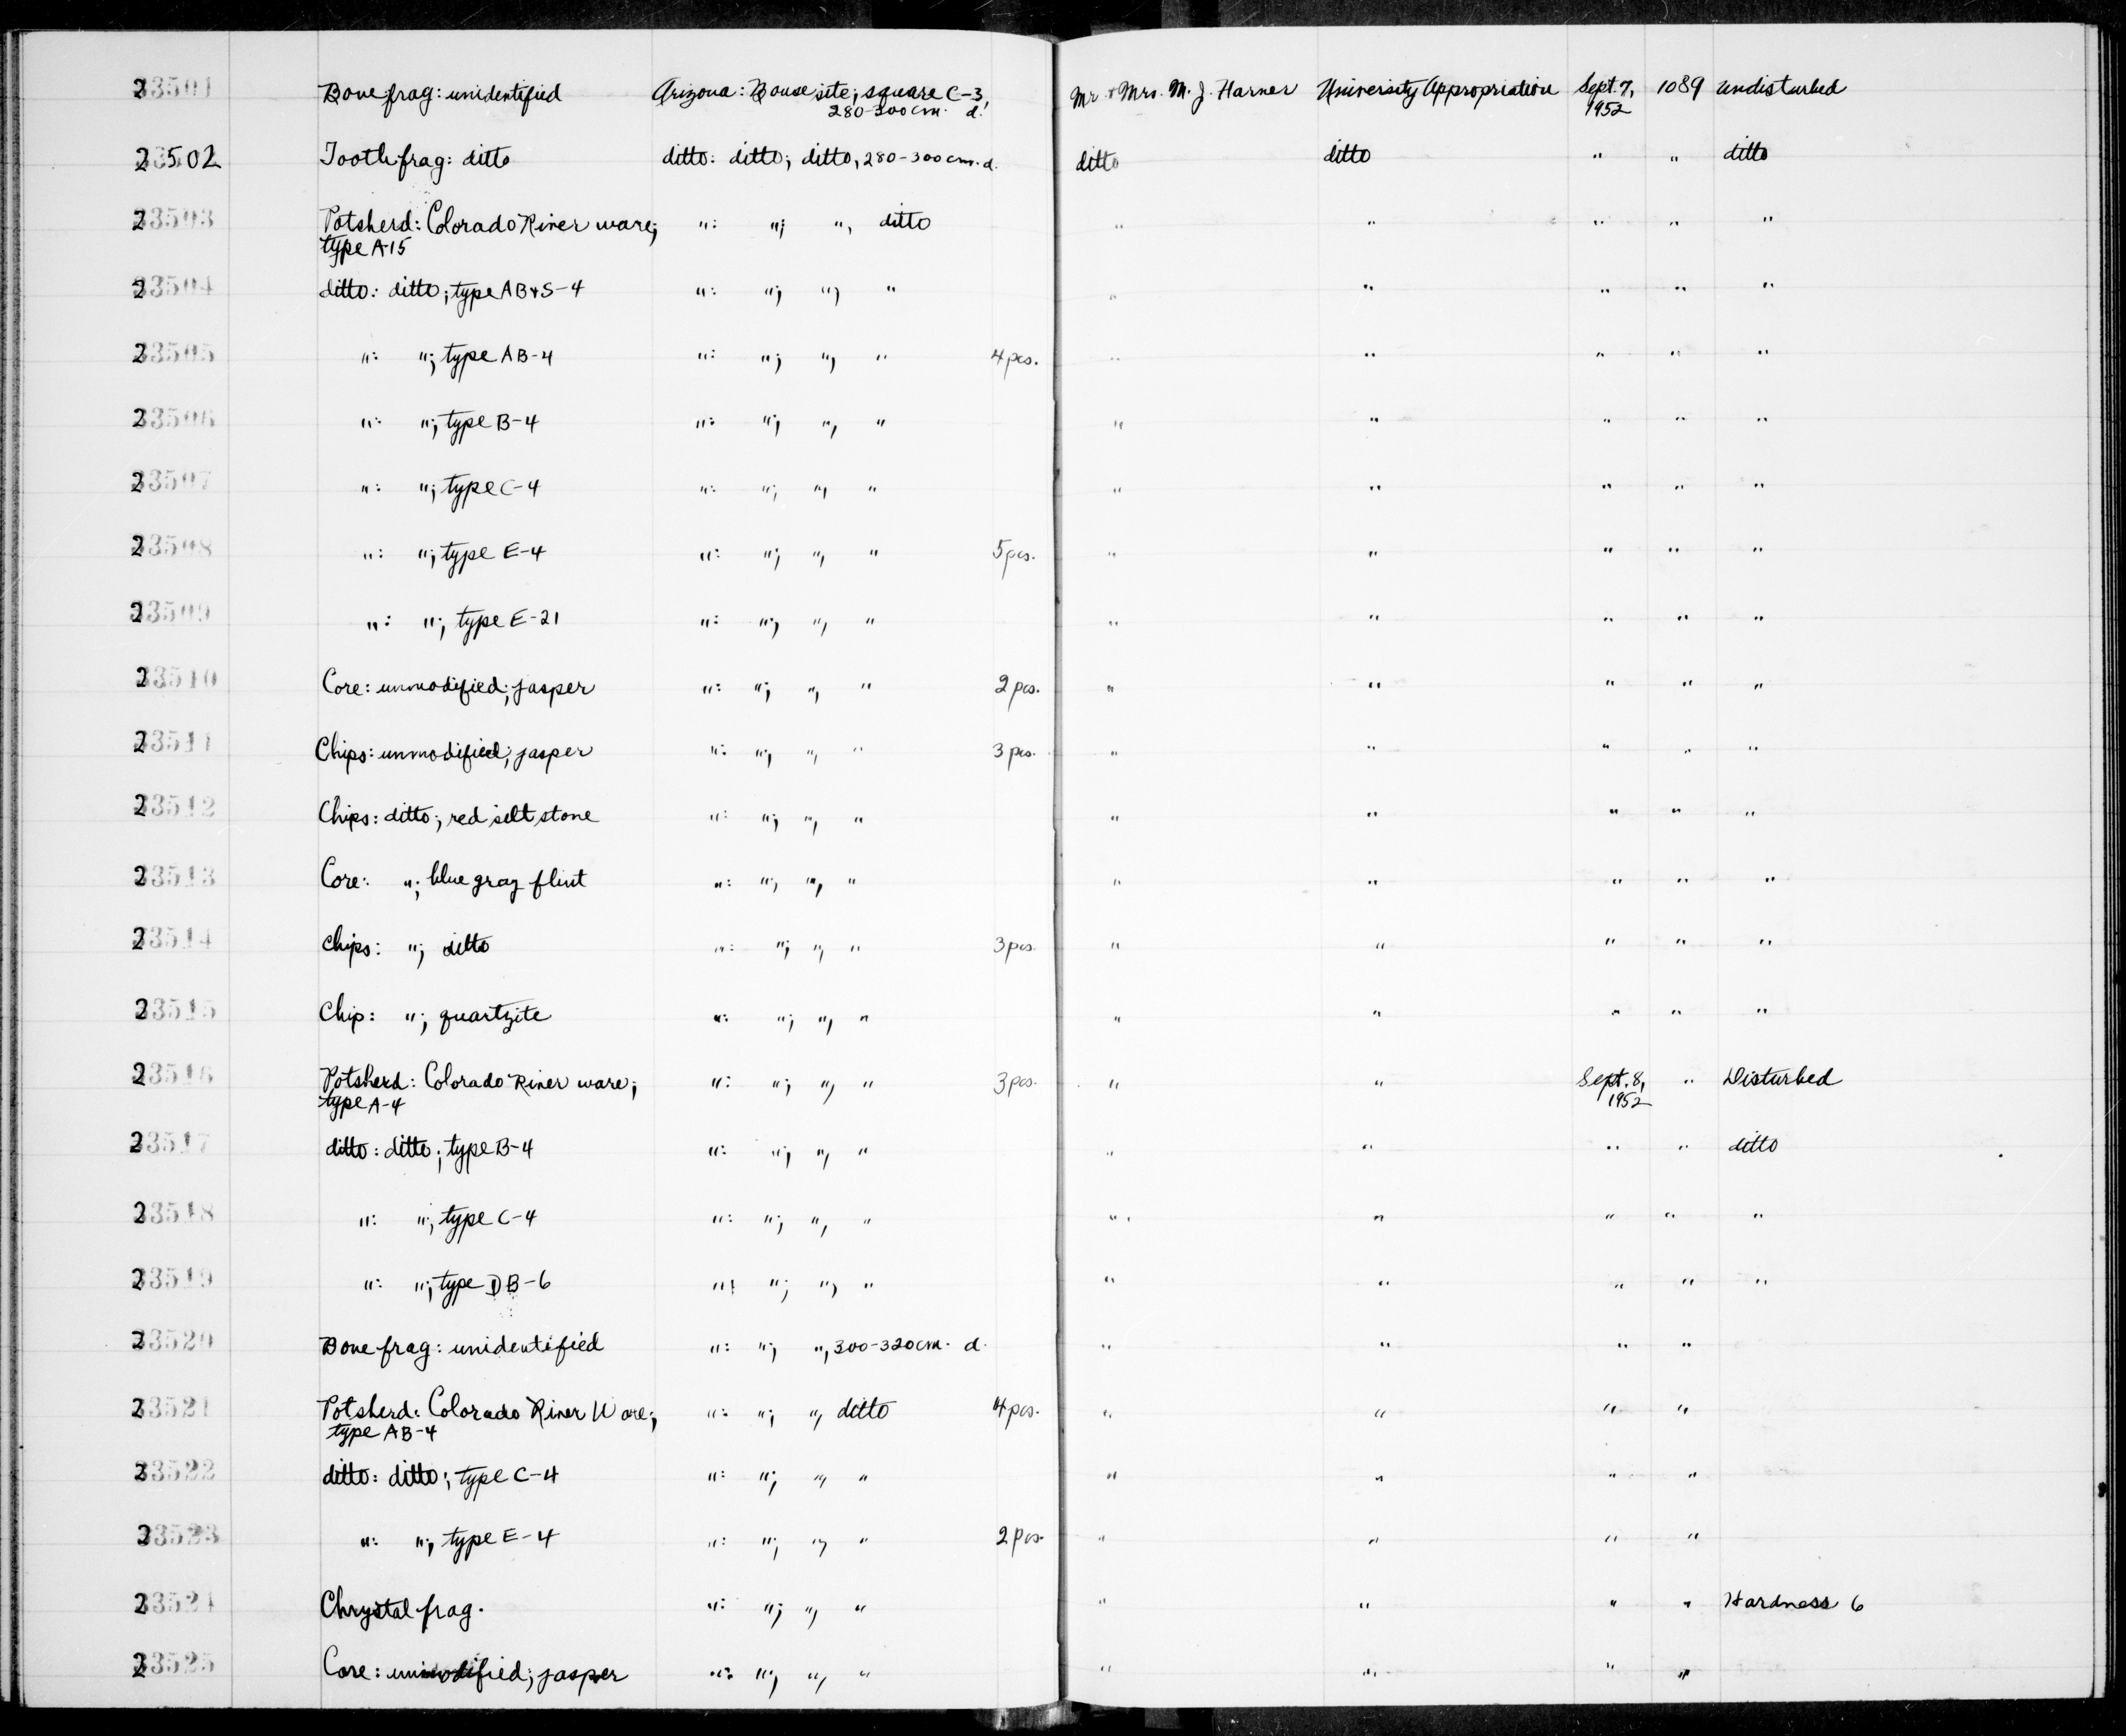 23501 Bone frag: unidentified Arizona: Bouse site; square C-3, Mr + Mrs. M. J. Harner University Appropriation Sept. 7, 1089 undisturbed
280-300 cm. d. 1952
23502 Tooth frag: ditto ditto: ditto; ditto, 280-300 cm. d. ditto ditto " " ditto
23503 Potsherd: Colorado River ware; ": "; ", ditto " " " " "
type A-15
23504 ditto: ditto; type AB+S-4 ": "; ", " " " " " "
23505 ": "; type AB-4 ": "; ", " 4 pcs. " " " " "
23506 ": "; type B-4 ": "; ", " " " " " "
23507 ": "; type C-4 ": "; ", " " " " " "
23508 ": "; type E-4 ": "; ", " 5 pcs. " " " " "
23509 ": "; type E-21 ": "; ", " " " " " "
23510 Core: unmodified; jasper ": "; ", " 2 pcs. " " " " "
23511 Chips: unmodified; jasper ": "; ", " 3 pcs. " " " " "
23512 Chips: ditto; red silt stone ": "; ", " " " " " "
23513 Core: "; blue gray flint ": "; ", " " " " " "
23514 Chips: "; ditto ": "; ", " 3 pcs. " " " " "
23515 Chip: "; quartzite ": "; ", " " " " " "
23516 Potsherd: Colorado River ware; ": "; ", " 3 pcs. " " Sept. 8, " Disturbed
type A-4 1952
23517 ditto: ditto; type B-4 ": "; ", " " " " " ditto
23518 ": "; type C-4 ": "; ", " " " " " "
23519 ": "; type DB-6 ": "; ", " " " " " "
23520 Bone frag: unidentified ": "; ", 300-320 cm. d. " " " "
23521 Potsherd: Colorado River Ware; ": "; ", ditto 4 pcs. " " " "
type AB-4
23522 ditto: ditto; type C-4 ": "; ", " " " " "
23523 ": "; type E-4 ": "; ", " 2 pcs. " " " "
23524 Chrystal frag. ": "; ", " " " " " Hardness 6
23525 Core: unmodified; jasper ": "; ", " " " " "